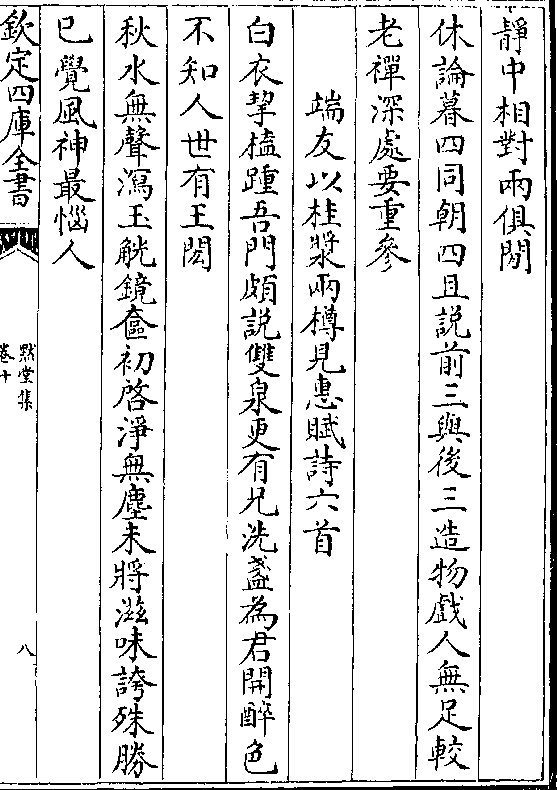 靜中相對兩俱閒
休論暮四同朝四且説前三與後三造物戲人無足較
老禪深處要重參
端友以桂漿兩樽見惠賦詩六首
白衣挈榼踵吾門頗説雙泉更有兄洗盞為君開醉色
不知人世有王閎
秋水無聲瀉玉觥鏡奩初啓淨無塵未將滋味誇殊勝
已覺風神最惱人
欽定四庫全書
黙堂集
卷十
八